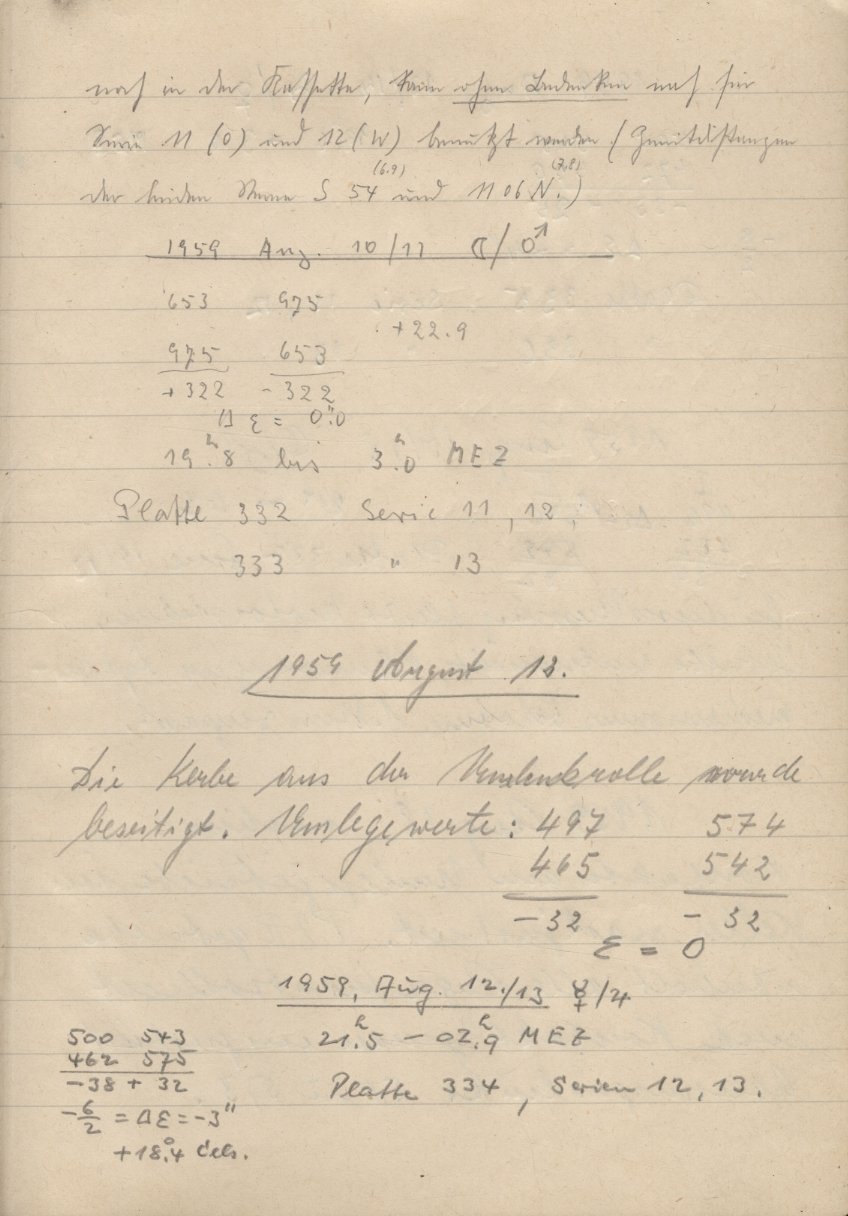 noch in der Kassette, kann ohne Bedenken noch für
Serie 11 (O) und 12 (W) benutzt werden (Zenitdistanzen
(6.9) (7.8)
der beiden Sterne S 54 und 1106 N.)
1959 Aug. 10/11 ☾/♂
653 975
+22.9
975 653
+322 -322
Δ ε = 0".0
19ʰ.8 bis 3ʰ.0 MEZ
Platte 332 Serie 11, 12,
333 " 13
1959 August 12.
Die Kerbe aus der Umlenkrolle wurde
beseitigt. Umlegewerte: 497 574
465 542
-32 - 32
ε = 0
1959, Aug. 12./13 ☿/♃
500 543 21ʰ.5 - 02ʰ.9 MEZ
462 575
-38 + 32 Platte 334, Serien 12, 13.
-6/2 = Δε = -3"
+18°.4 Cels.